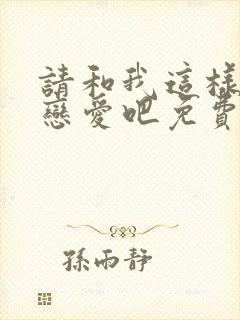 請和我這樣
戀愛吧免費
孫雨靜